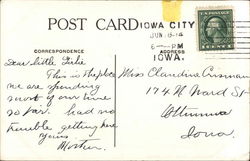 POST CARD
IOWA CITY
JUN
6-PM
IOWA.
CORRESPONDENCE
ADDRESS
Dear little Girlie
This is the place
we are spending
most of our time
so far. had no
trouble getting here
Yours
Mother.
Miss Claudine Crisman
174 N Ward St
Ottumwa
Iowa.